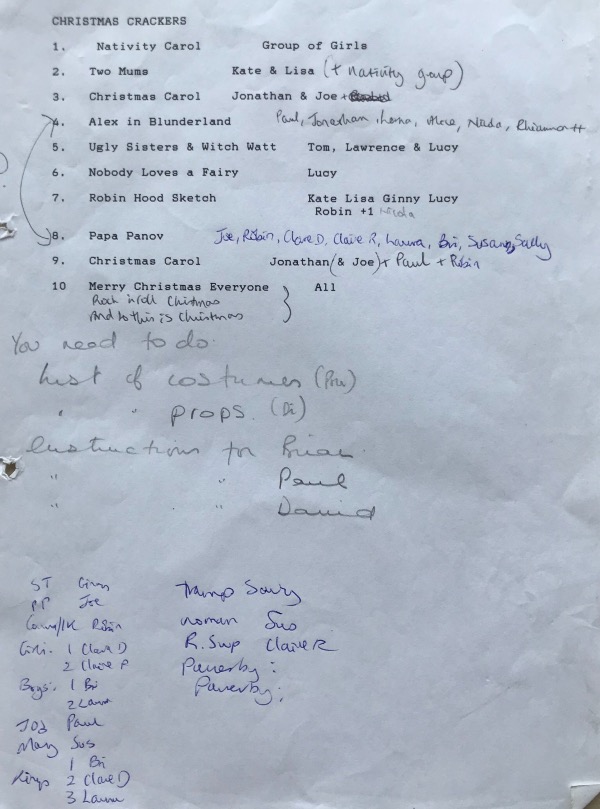 CHRISTMAS CRACKERS
1. Nativity Carol Group of Girls
2. Two Mums Kate & Lisa (+ Nativity group)
3. Christmas Carol Jonathan & Joe +
4. Alex in Blunderland Paul, Jonathan, Lorna, Alexe, Nilda, Rhiannon H
5. Ugly Sisters & Witch Watt Tom, Lawrence & Lucy
6. Nobody Loves a Fairy Lucy
7. Robin Hood Sketch Kate Lisa Ginny Lucy
Robin +1 Nilda
8. Papa Panov Joe, Robin, Clare D, Claire R, Laura, Bri, Susan, Sally
9. Christmas Carol Jonathan (& Joe) + Paul + Robin
10 Merry Christmas Everyone All
Rock n roll Christmas
And so this is Christmas
You need to do
List of costumes (Pru)
" " props. (Di)
Instructions for Brian
" " Paul
" " David
ST Ginny
PP Joe
Robin
Girls. 1 Clare D
2 Claire R
Boys. 1 Bri
2 Laura
Jos Paul
Mary Sus
1 Bri
Kings 2 Clare D
3 Laura
Tramp Sally
Woman Sus
R. Swp Claire R
Passerby:
Passerby: